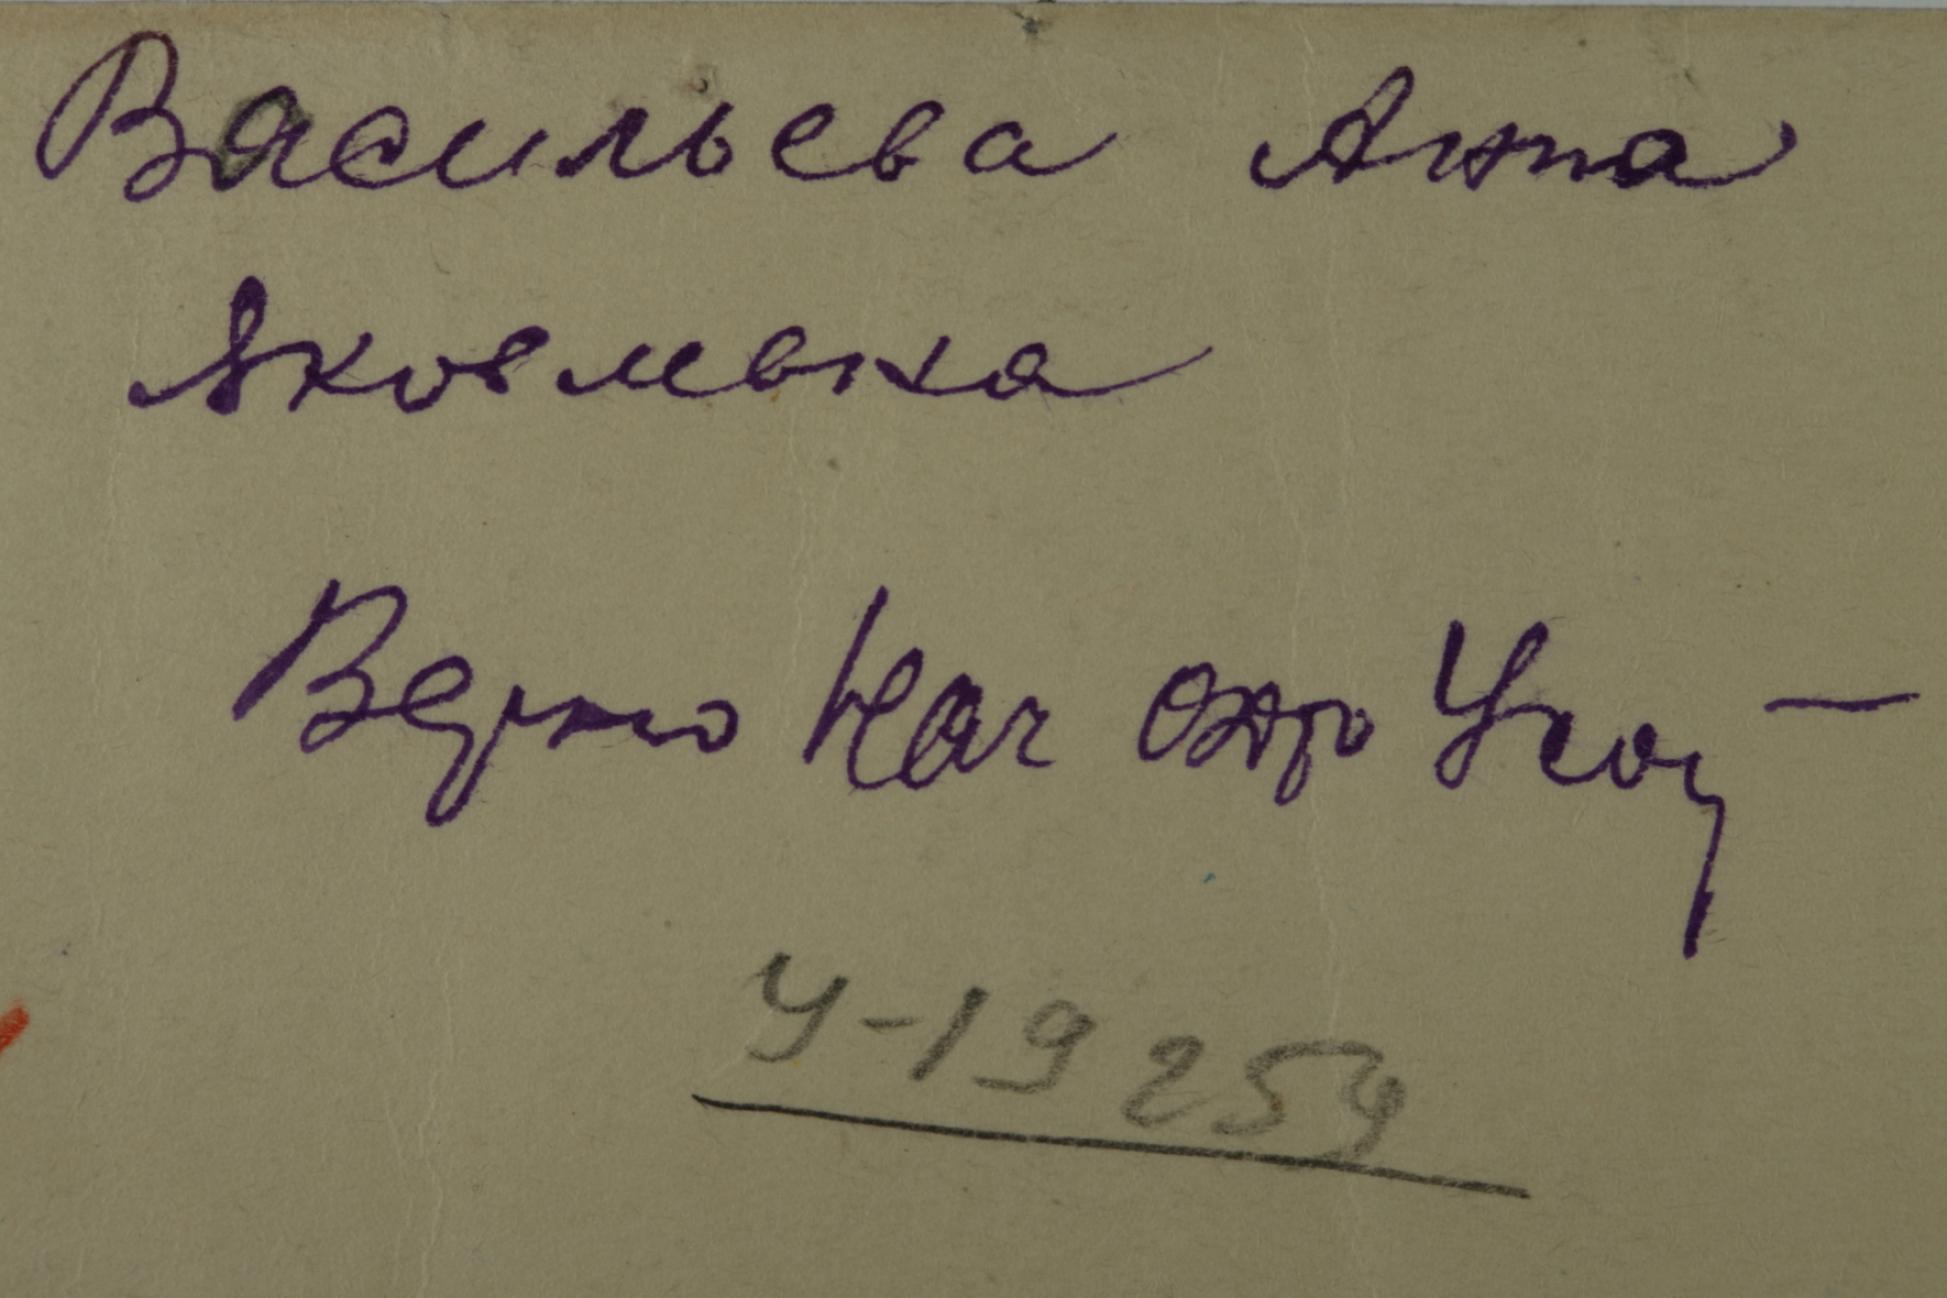 Васильева Анна
Яковлевна
Верно Нач
У-19259